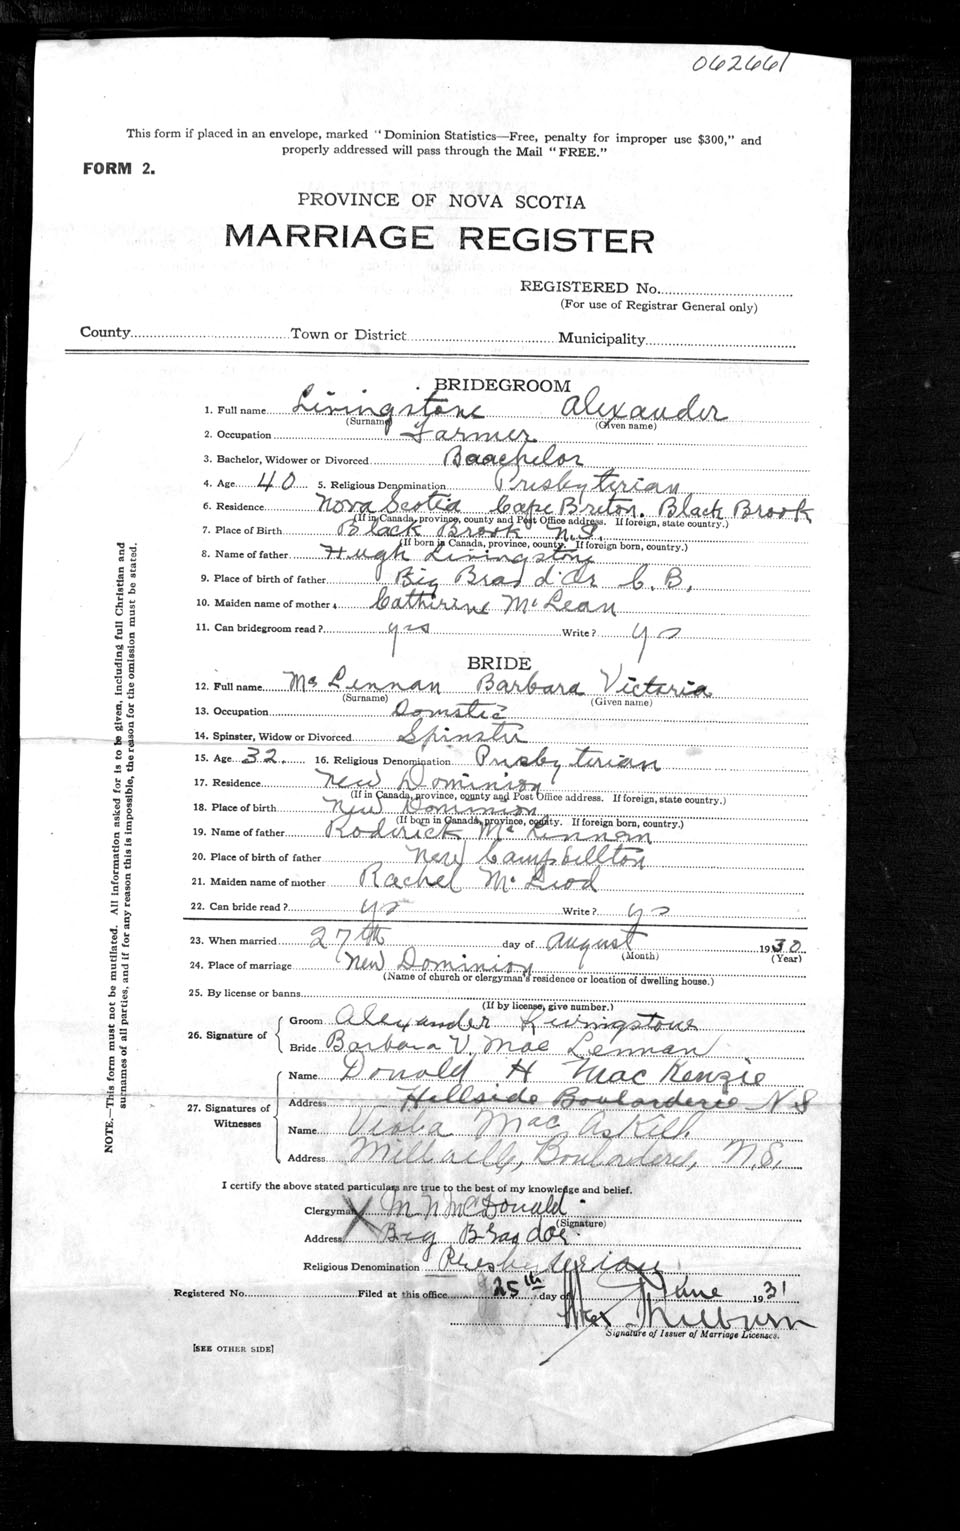 062661
This form if placed in an envelope, marked "Dominion Statistics—Free, penalty for improper use $300," and
properly addressed will pass through the Mail "FREE."
FORM 2.
PROVINCE OF NOVA SCOTIA
MARRIAGE REGISTER
REGISTERED No.
(For use of Registrar General only)
County Town or District Municipality
BRIDEGROOM
1. Full name Livingstone Alexander
(Surname) (Given name)
2. Occupation Farmer
3. Bachelor, Widower or Divorced Baachelor
4. Age 40 5. Religious Denomination Presbyterian
6. Residence Nova Scotia Cape Breton. Black Brook
(If in Canada, province, county and Post Office address. If foreign, state country.)
7. Place of Birth Black Brook N.S.
(If born in Canada, province, county. If foreign born, country.)
8. Name of father Hugh Livingstone
9. Place of birth of father Big Bras d'Or C.B.
10. Maiden name of mother Catherine McLean
11. Can bridegroom read? yes Write? yes
BRIDE
12. Full name McLennan Barbara Victoria
(Surname) (Given name)
13. Occupation Domstic
14. Spinster, Widow or Divorced Spinster
15. Age 32 16. Religious Denomination Presbyterian
17. Residence New Dominion
(If in Canada, province, county and Post Office address. If foreign, state country.)
18. Place of birth New Dominion
(If born in Canada, province, county. If foreign born, country.)
19. Name of father Roderick McLennan
20. Place of birth of father New Campbellton
21. Maiden name of mother Rachel McLeod
22. Can bride read? yes Write? yes
23. When married 27th day of August 1930
(Month) (Year)
24. Place of marriage New Dominion
(Name of church or clergyman's residence or location of dwelling house.)
25. By license or banns
(If by license, give number.)
26. Signature of Groom Alexander Livingstone
Bride Barbara V. MacLennan
27. Signatures of Witnesses Name Donald H MacKenzie
Address Hillside Boularderie N S
Name Viola MacAskill
Address Millville, Boularderie, N.S.
I certify the above stated particulars are true to the best of my knowledge and belief.
Clergyman X M N McDonald
(Signature)
Address Big Brasdor
Religious Denomination Presbyterian
Registered No. Filed at this office 25th day of June 1931
Signature of Issuer of Marriage Licenses.
[SEE OTHER SIDE]
NOTE.—This form must not be mutilated. All information asked for is to be given, including full Christian and
surnames of all parties, and if for any reason this is impossible, the reason for the omission must be stated.